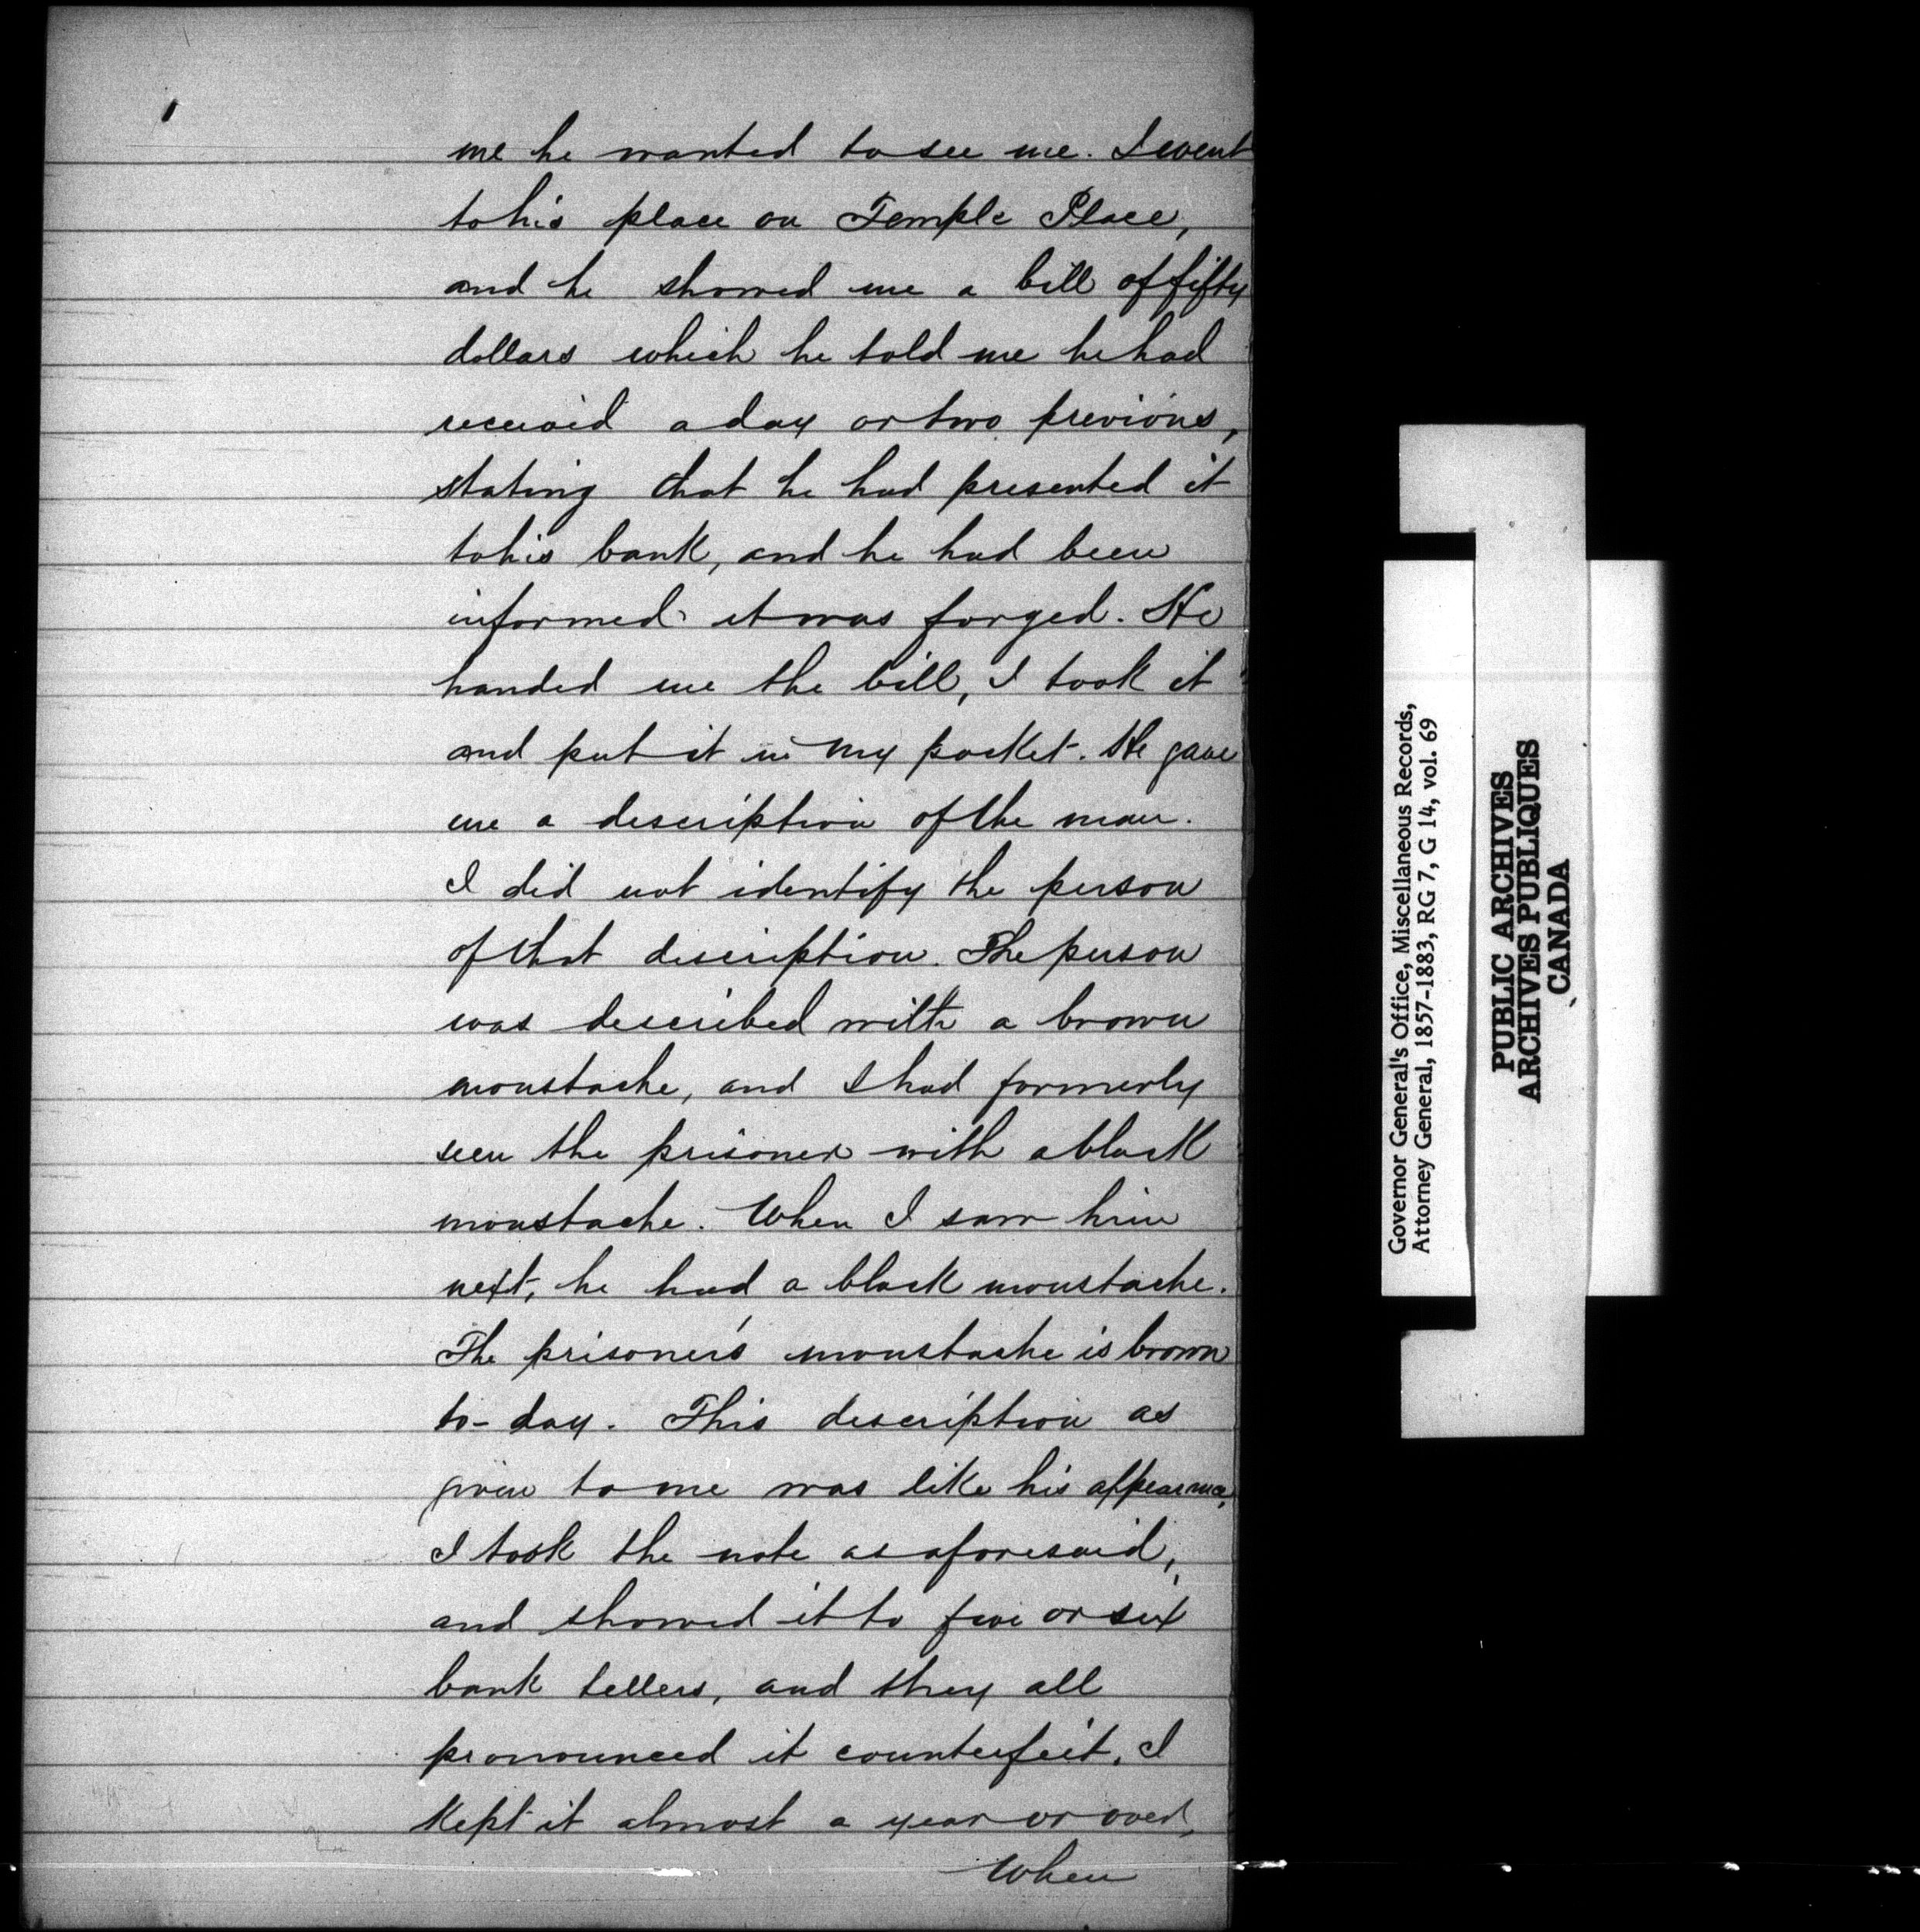 me he wanted to see me. I went
to his place on Temple Place,
and he showed me a bill of fifty
dollars which he told me he had
received a day or two previous,
stating that he had presented it
to his bank, and he had been
informed it was forged. He
handed me the bill, I took it
and put it in my pocket. He gave
me a description of the man.
I did not identify the person
of that description. The person
was described with a brown
moustache, and I had formerly
seen the prisoner with a black
moustache. When I saw him
next, he had a black moustache.
The prisoner's moustache is brown
to-day. This description as
given to me was like his appearance.
I took the note as aforesaid,
and showed it to five or six
bank tellers, and they all
pronounced it counterfeit. I
kept it almost a year or over,
When
Governor General's Office, Miscellaneous Records,
Attorney General, 1857-1883, RG 7, G 14, vol. 69
PUBLIC ARCHIVES
ARCHIVES PUBLIQUES
CANADA